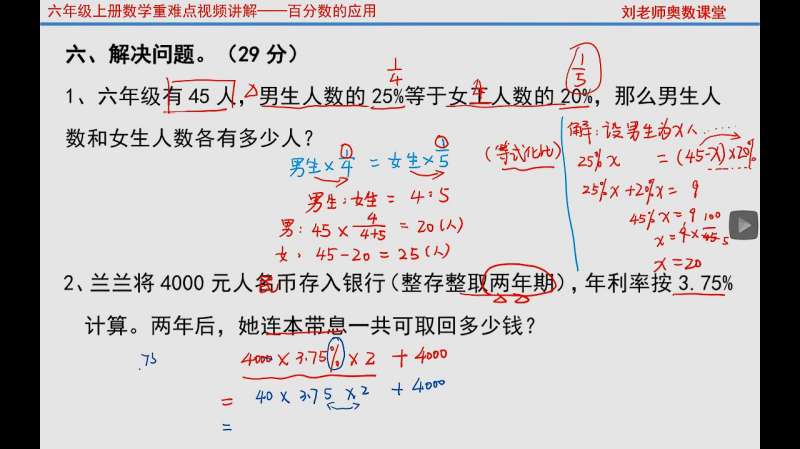 六年级上册数学重难点视频讲解——百分数的应用
刘老师奥数课堂
六、解决问题。（29 分）
1/4
1/5
1、六年级有 45 人，男生人数的 25%等于女生人数的 20%，那么男生人
数和女生人数各有多少人？
男生×1/4 = 女生×1/5
(等式化比)
男生:女生 = 4:5
男: 45 × 4/(4+5) = 20(人)
女: 45-20 = 25(人)
解:设男生为x人……
25%x = (45-x)×20%
25%x+20%x = 9
45%x = 9
x = 9 × 100/45 5
x = 20
2、兰兰将 4000 元人民币存入银行（整存整取两年期），年利率按 3.75%
计算。两年后，她连本带息一共可取回多少钱？
4000 × 3.75% × 2 + 4000
= 40 × 3.75 × 2 + 4000
=
.75